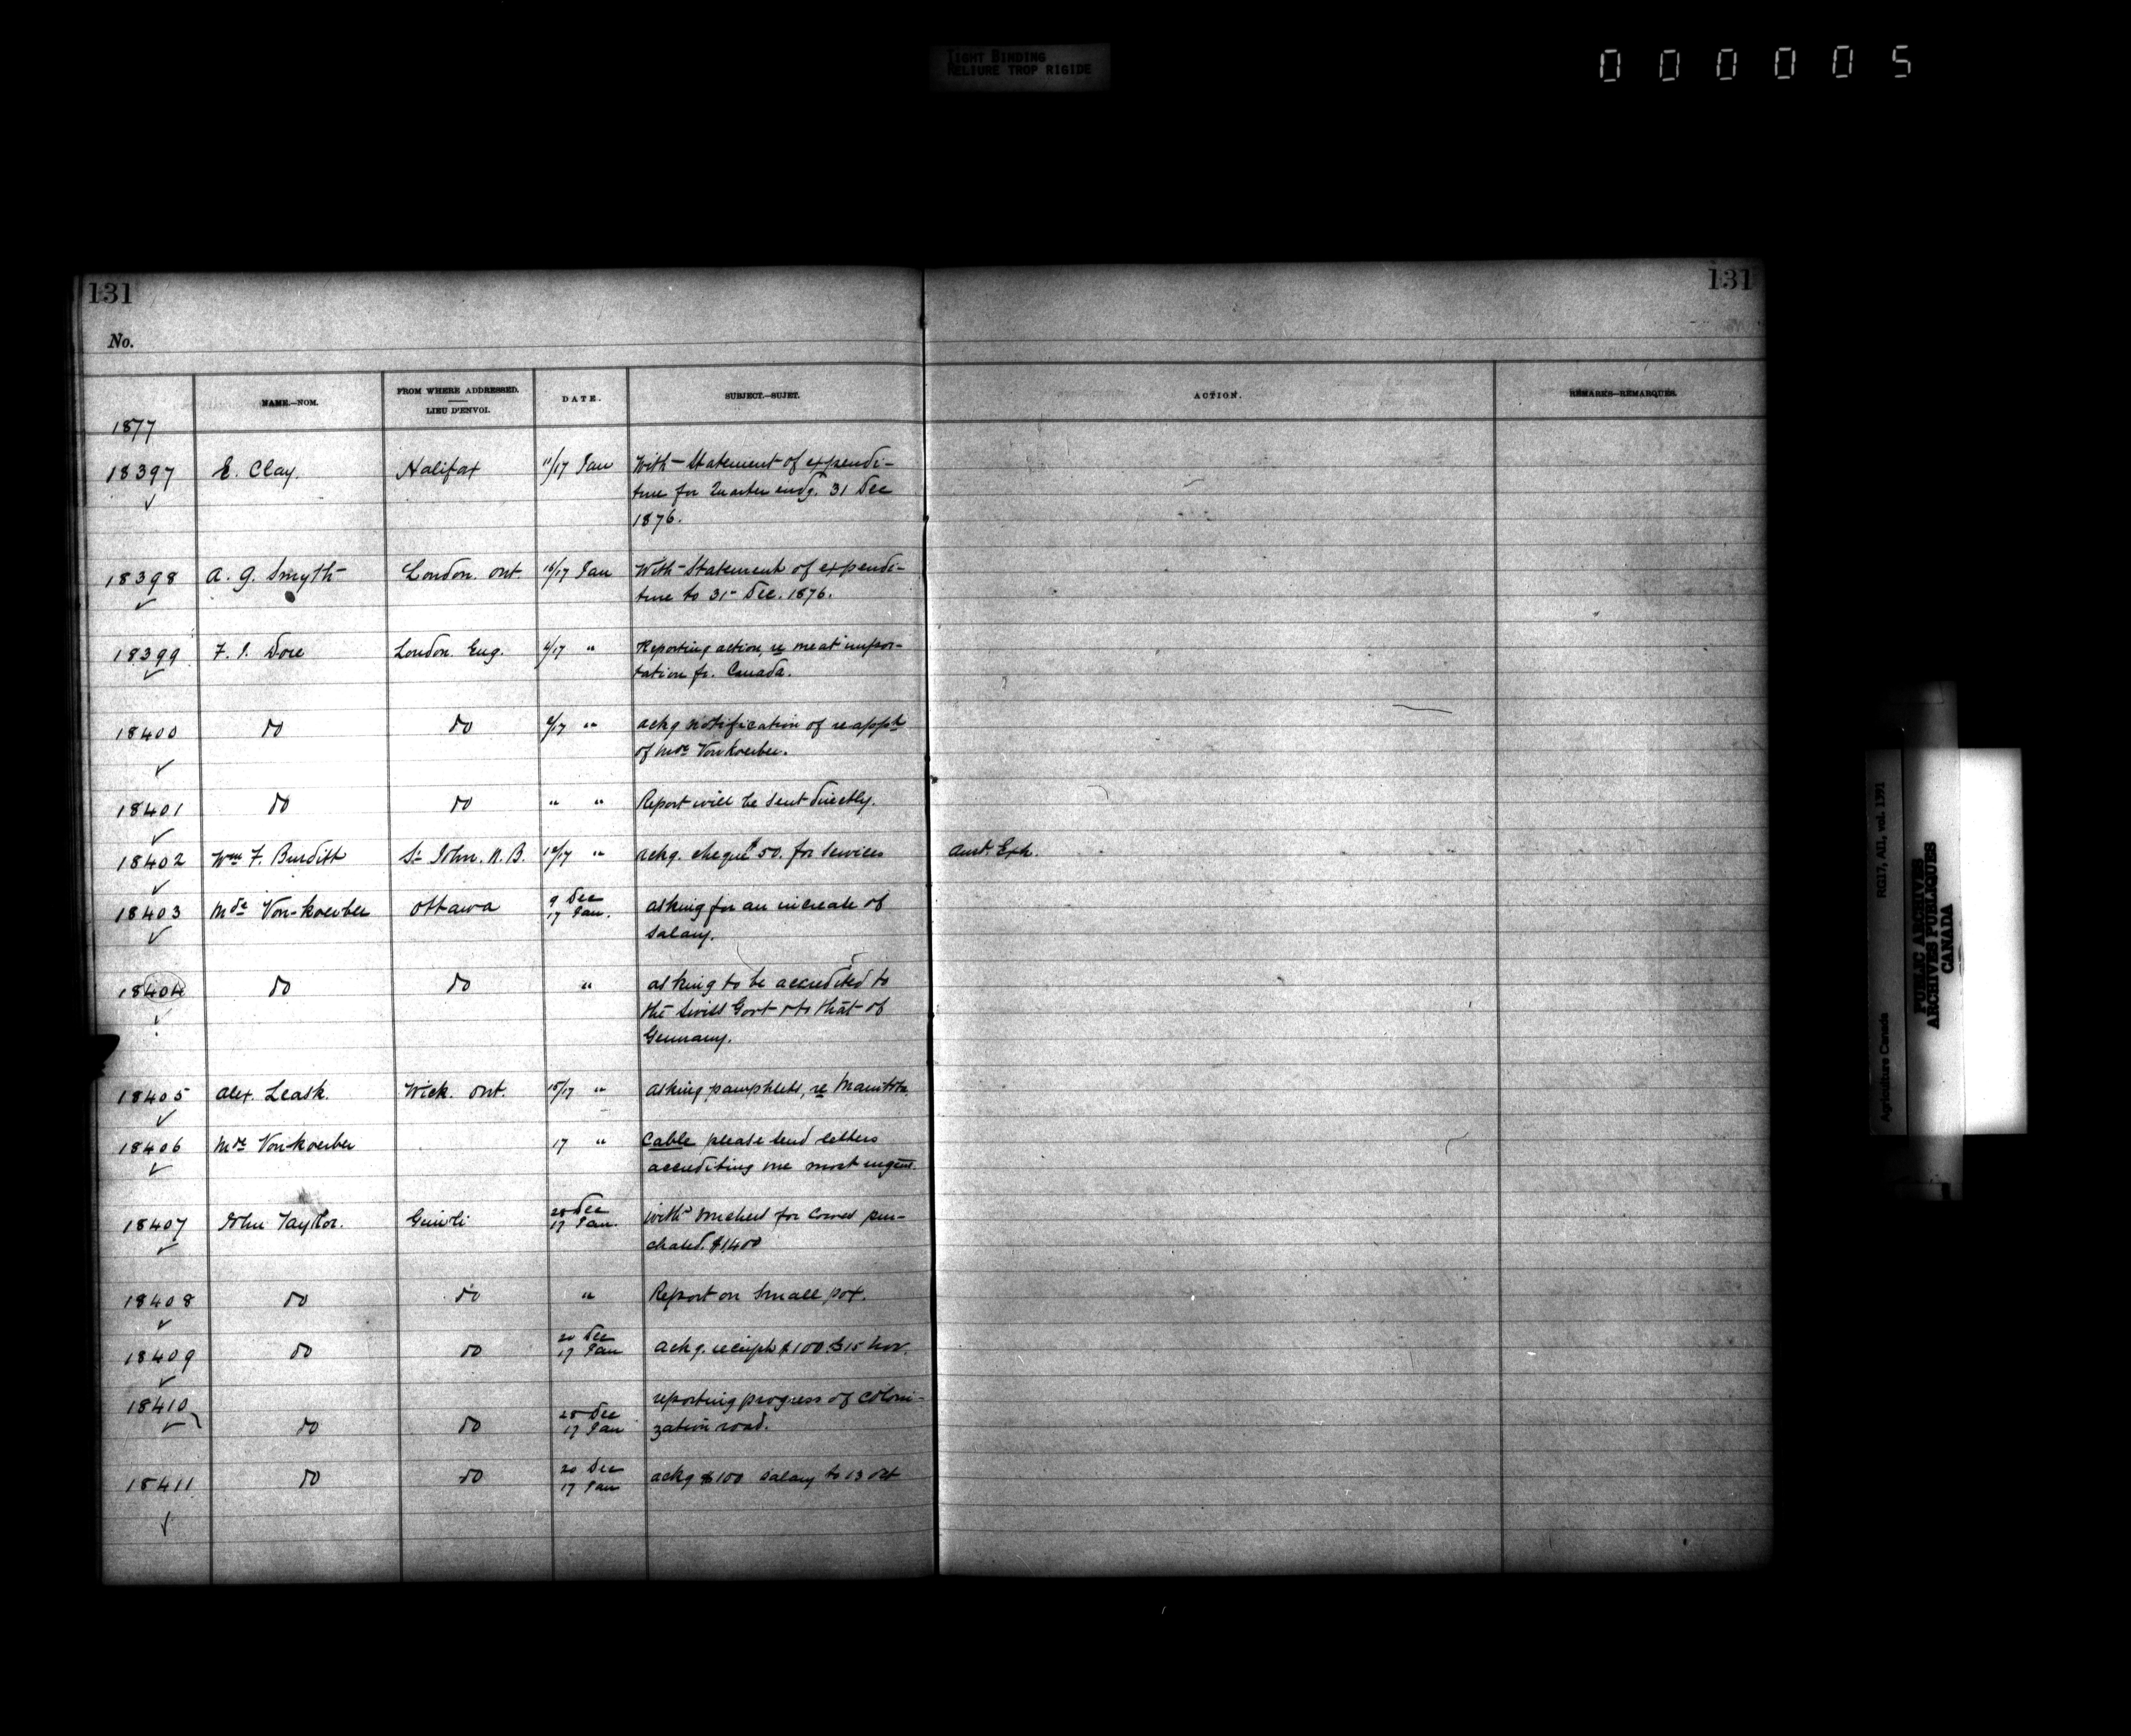 TIGHT BINDING
RELIURE TROP RIGIDE
000005
131 131
No.
NAME.—NOM. FROM WHERE ADDRESSED. LIEU D'ENVOI. DATE. SUBJECT.—SUJET. ACTION. REMARKS—REMARQUES.
1877
18397 E. Clay. Halifax 11/17 Jan With Statement of expendi-
ture for Quarter endg. 31 Dec
1876.
18398 A. G. Smyth London. Ont. 16/17 Jan With Statement of expendi-
ture to 31 Dec. 1876.
18399 F. J. Dore London. Eng. /17 " Reporting action, re meat impor-
tation fr. Canada.
18400 do do /17 " ackg notification of reappt
of Mde Von Koerber.
18401 do do " " Report will be sent directly.
18402 Wm F. Burditt St John. N.B. 12/17 " ackg. cheque $50. for Services Aust. Exh.
18403 Mde Von-Koerber Ottawa 9 Dec
17 Jan. asking for an increase of
salary.
18404 do do " asking to be accredited to
the Swiss Govt & to that of
Germany.
18405 Alex. Leask. Wick. Ont. 15/17 " asking pamphlets, re Manitoba.
18406 Mde Von-Koerber 17 " Cable please send letters
accrediting me most urgent.
18407 John Taylor. Gimli 28 Dec
17 Jan. with vouchers for Cows pur-
chased. $1400
18408 do do " Report on Small pox.
18409 do do 20 Dec
17 Jan ackg. receipt $100 15 Nov.
18410 do do 28 Dec
17 Jan reporting progress of Coloni-
zation road.
18411 do do 20 Dec
17 Jan ackg $100 salary to 13 Oct
Agriculture Canada RG17, AII, vol. 1391
PUBLIC ARCHIVES
ARCHIVES PUBLIQUES
CANADA